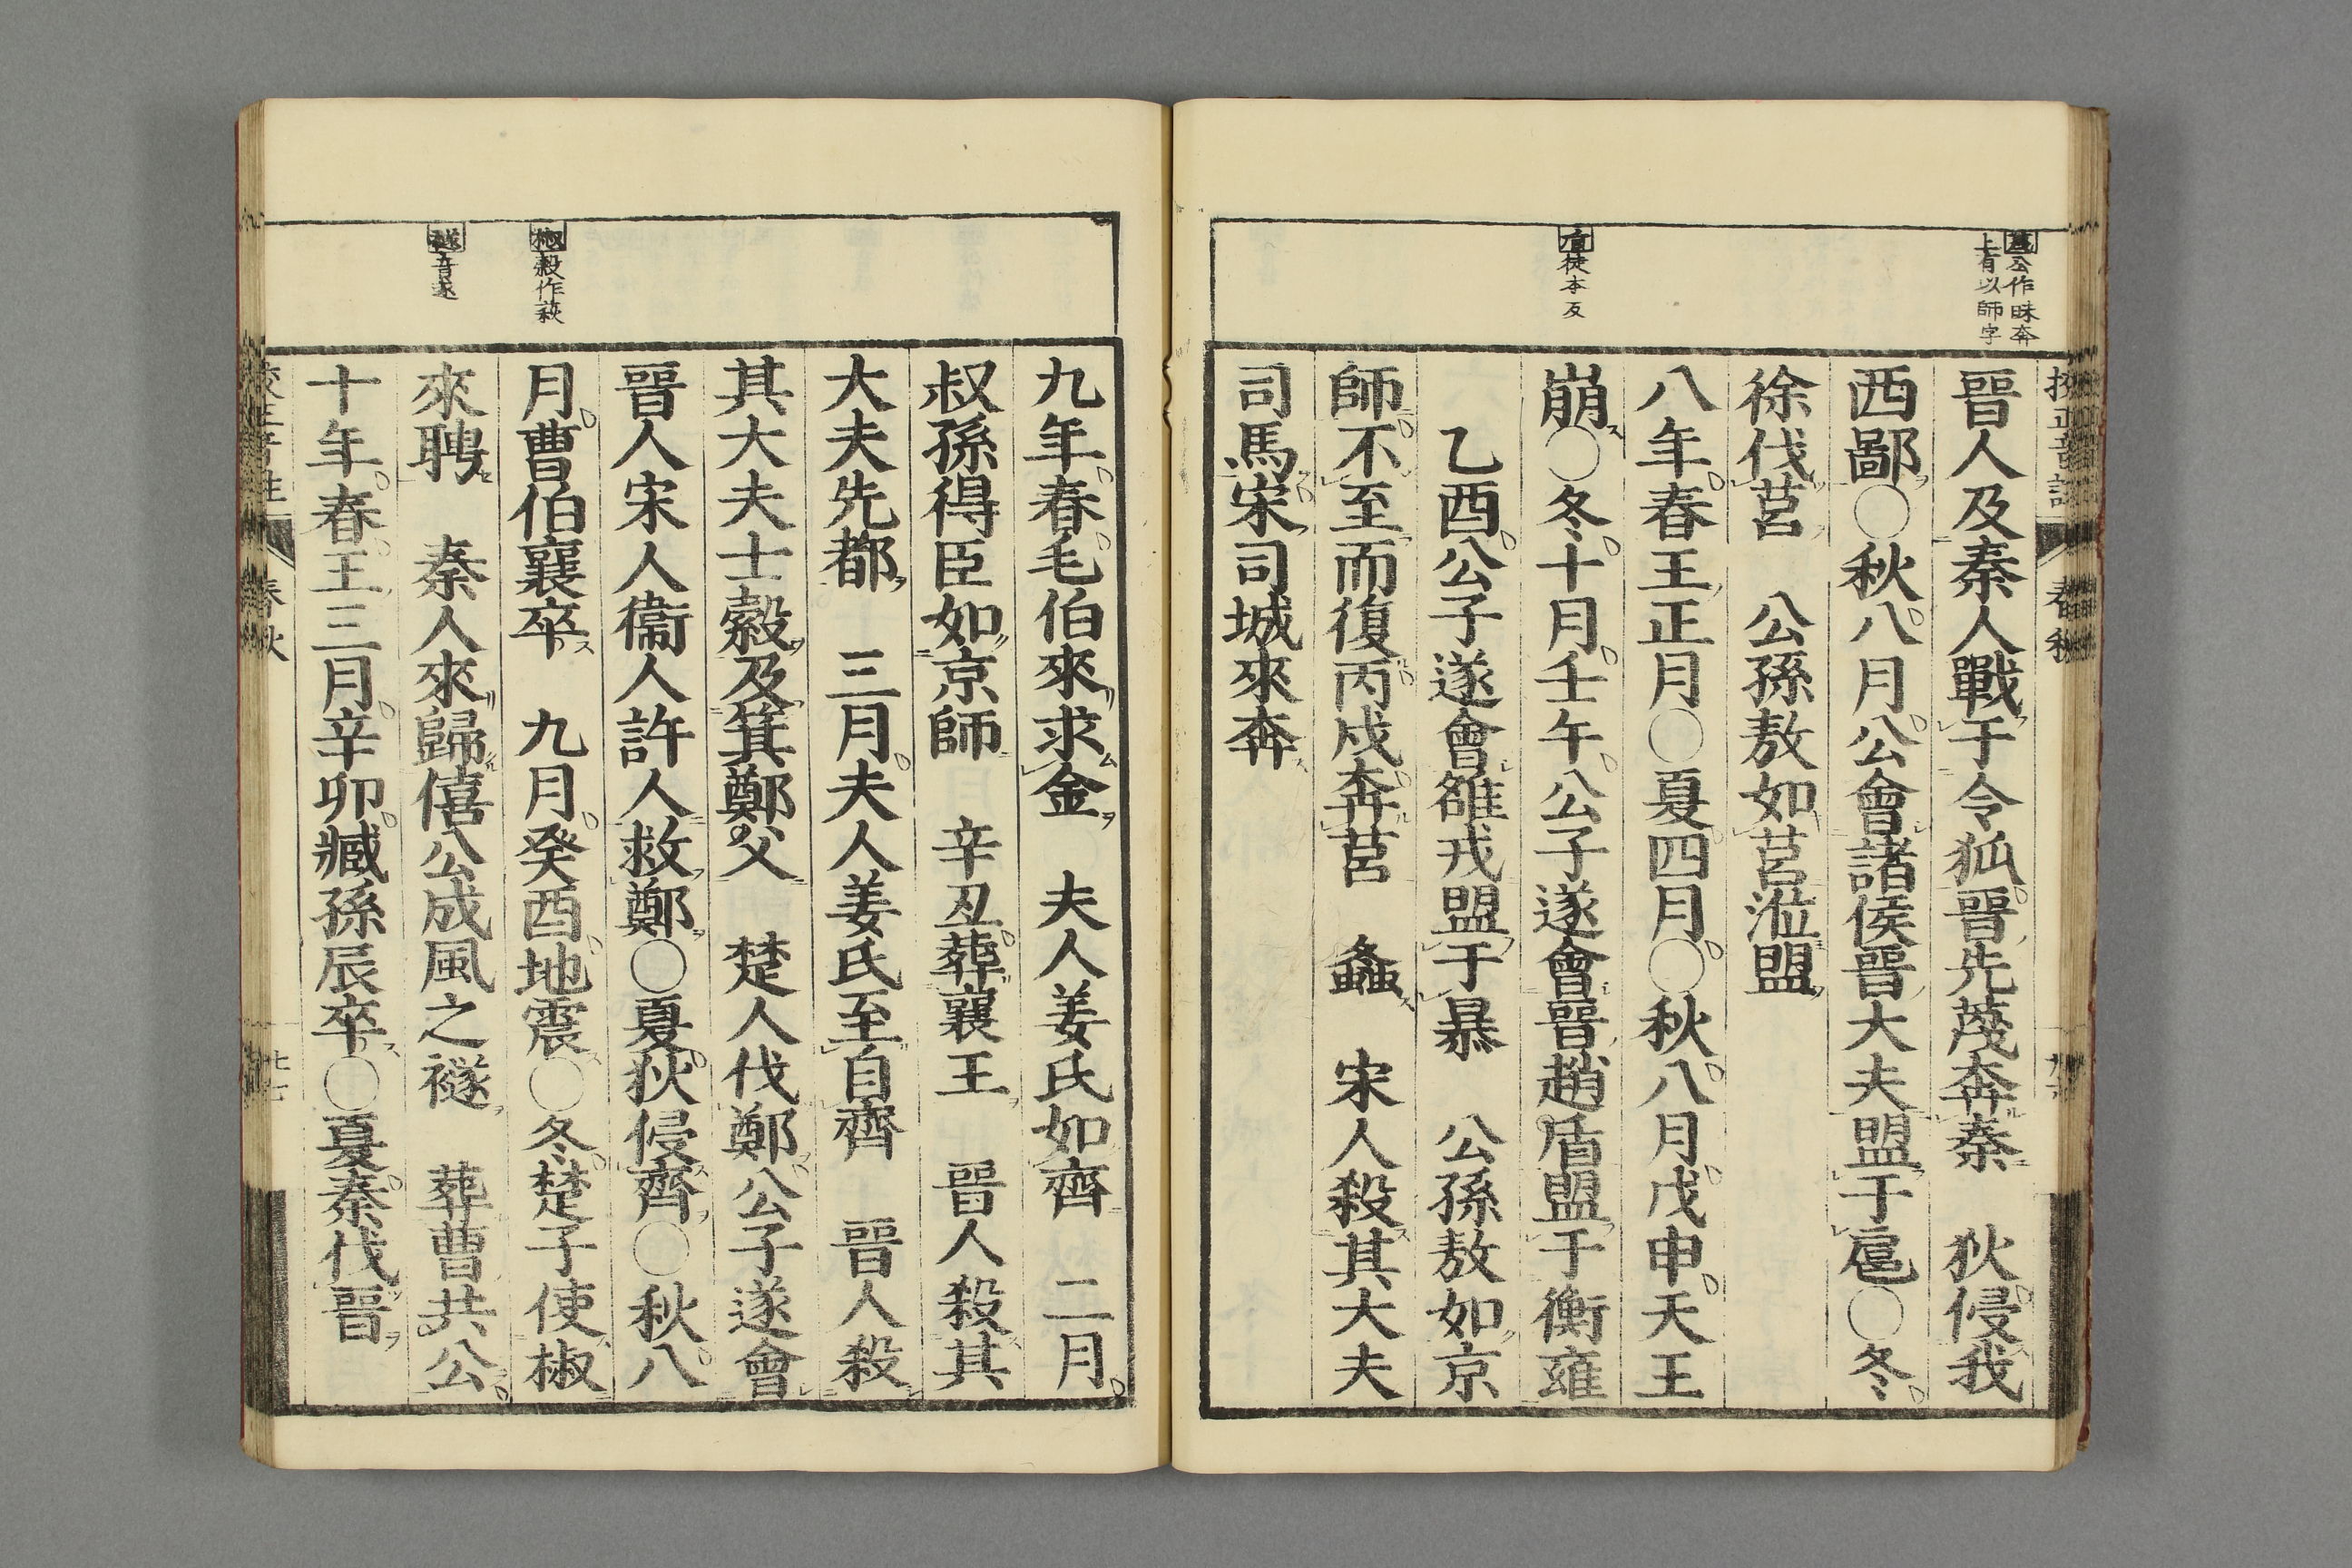 蔑公作昧奔
上有以師字
盾徒本反
晉人及秦人戰于令狐晉先蔑奔秦　狄侵我
西鄙○秋八月公會諸侯晉大夫盟于扈○冬
徐伐莒　公孫敖如莒涖盟
八年春王正月○夏四月○秋八月戊申天王
崩○冬十月壬午公子遂會晉趙盾盟于衡雍
乙酉公子遂會雒戎盟于暴　公孫敖如京
師不至而復丙戌奔莒　螽　宋人殺其大夫
司馬宋司城來奔
椒穀作萩
襚音遂
九年春毛伯來求金　夫人姜氏如齊　二月
叔孫得臣如京師　辛丑葬襄王　晉人殺其
大夫先都　三月夫人姜氏至自齊　晉人殺
其大夫士縠及箕鄭父　楚人伐鄭公子遂會
晉人宋人衞人許人救鄭○夏狄侵齊○秋八
月曹伯襄卒　九月癸酉地震○冬楚子使椒
來聘　秦人來歸僖公成風之襚　葬曹共公
十年春王三月辛卯臧孫辰卒○夏秦伐晉
春秋